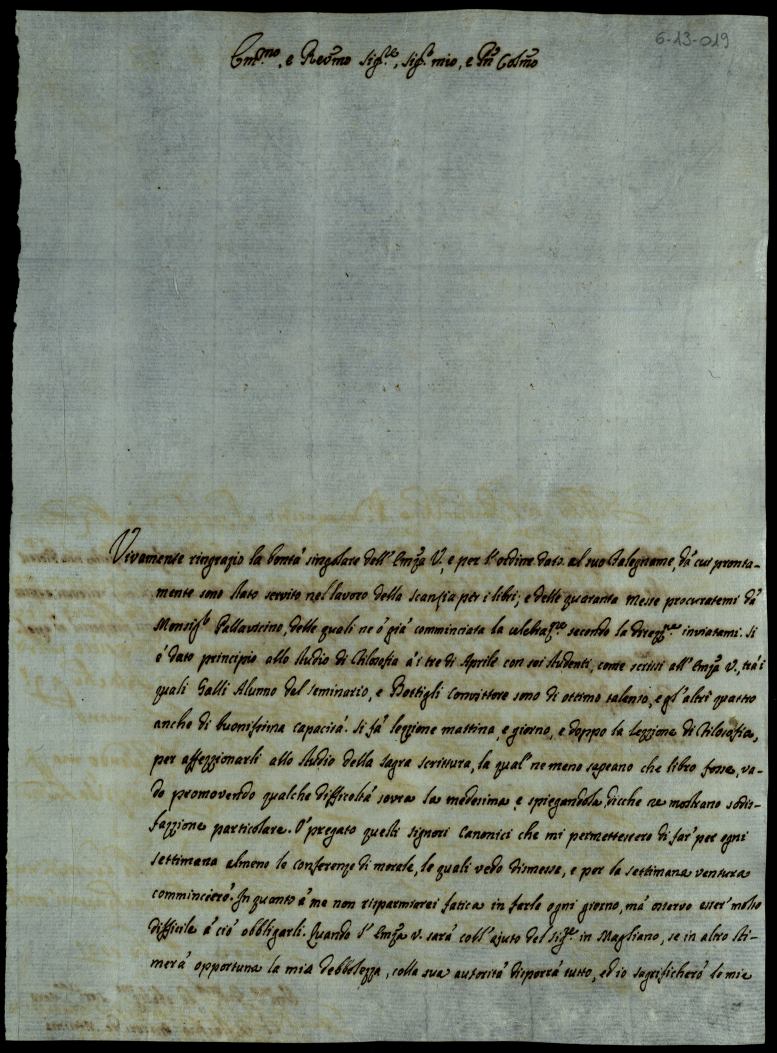 6-13-019
Em.mo, e Reumo Sig.re, Sig.r mio, e Pn Colmo
Vivamente ringrazio la bontà singolare dell'Emza V., e per l'ordine dato al suo Falegname, dà cui pronta-
mente sono stato servito nel lavoro della scanzia per i libri; e delle quaranta Messe procuratemi dà
Monsig.r Pallavicino, delle quali ne ò già comminciata la celebraz.ne secondo la direzz.ne inviatami. Si
è dato principio allo studio di Filosofia à i tre di Aprile con sei studenti, come scrissi all'Emza V., trà i
quali Galli Alunno del seminario, e Bottigli Convittore sono di ottimo talento, e gl'altri quattro
anche di buonissima capacità. Si fà lezzione mattina, e giorno, e doppo la Lezzione di Filosofia,
per affezzionarli allo studio della sagra scrittura, la qual' ne meno sapeano che libro fosse, va-
do promovendo qualche difficoltà sovra la medesima, e spiegandola, dicche ne mostrano sodis-
fazzione particolare. Ò pregato questi signori Canonici che mi permettessero di far' per ogni
settimana almeno le conferenze di morale, le quali vedo dismesse, e per la settimana ventura
commincierò. In quanto à me non risparmierei fatica in farle ogni giorno, mà osservo esser' molto
difficile à ciò obbligarli. Quando l'Emza V. sarà coll'ajuto del Sig.re in Magliano, se in altro sti-
merà opportuna la mia debbolezza, colla sua autorità disporrà tutto, ed io sagrificherò le mie